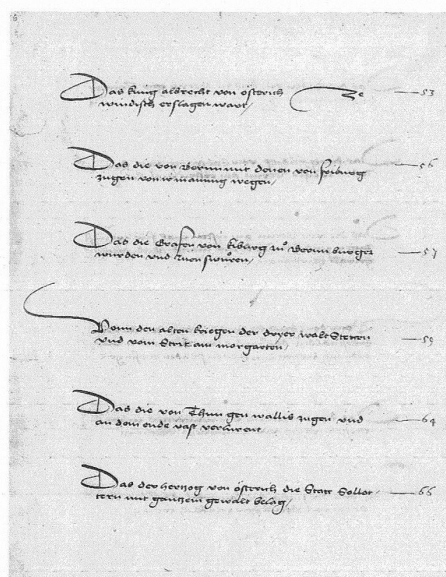 Das küng albrecht von österich 53
mördisch erslagen wart
Das die von Bernn mit denen von friburg 56
zugen von r manung wegen
Das die Grafen von kiburg zuͦ Bernn burger 57
wurden und inen swuͦren
Vonn den alten kriegen der dryer waltstetten 59
und vom Strit am morgarten
Das die von Thun gen wallis zugen und 64
an dem ende vast verlurent
Das der hertzog von österich die Statt Sollot- 66
tern mit gantzem gewalt belag